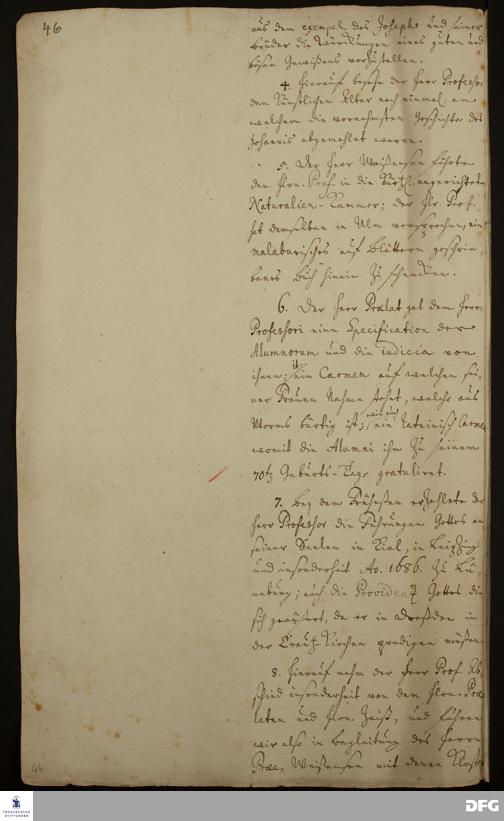 46
aus dem exempel des Josephs und seiner
brüder die Würckungen eines guten und
bösen Gewißens vorzustellen.
4. Hierauf besahe der Herr Professor
den Künstlichen Altar noch einmal, an
welchem die vornehmsten Geschichte des
Johannis abgemahlet waren.
5. Der Herr Weißensee führte
den Hrn. Prof. in die angerichtete
Naturalien-Kammer; der Hr. Prof.
hat demselben in Ulm versprochen, ein
malabarisches auf Blättern geschrie-
benes Buch hinein zu schencken.
6. Der Herr Praelat gab dem Herrn
Professori eine Specification der
Alumnorum und die iudicia von
ihnen; it. ein Carmen auf welchen sei-
ner Frauen Nahme stehet, welche aus
Worms bürtig ist; wie auch ein lateinisch Carmen
womit die Alumni ihm zu seinem
70ten Geburts-Tage gratuliret.
7. Bey dem Frühessen erzehlete der
Herr Professor die Führungen Gottes an
seiner Seelen in Kiel, in Leipzig
und insonderheit Ao. 1686. zu Lü-
neburg; auch die Providenz Gottes die
sich geäußert, da er in Dreßden in
der Creutz-Kirchen predigen müßen.
8. Hierauf nahm der Herr Prof. Ab-
schied insonderheit von dem Hrn. Prae-
laten und Hrn. Zeiß, und fuhren
wir also in begleitung des Herrn
Praec. Weißensee mit denen Klost
46
FRANCKESCHE STIFTUNGEN
DFG